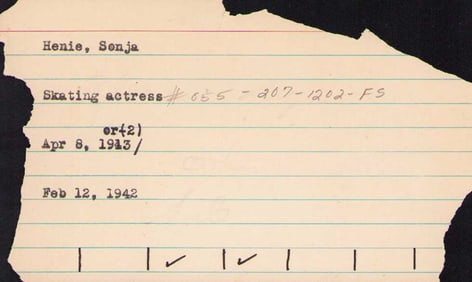 Henie, Sonja
Skating actress # 055-207-1202-FS
or(2)
Apr 8, 1913/
Feb 12, 1942